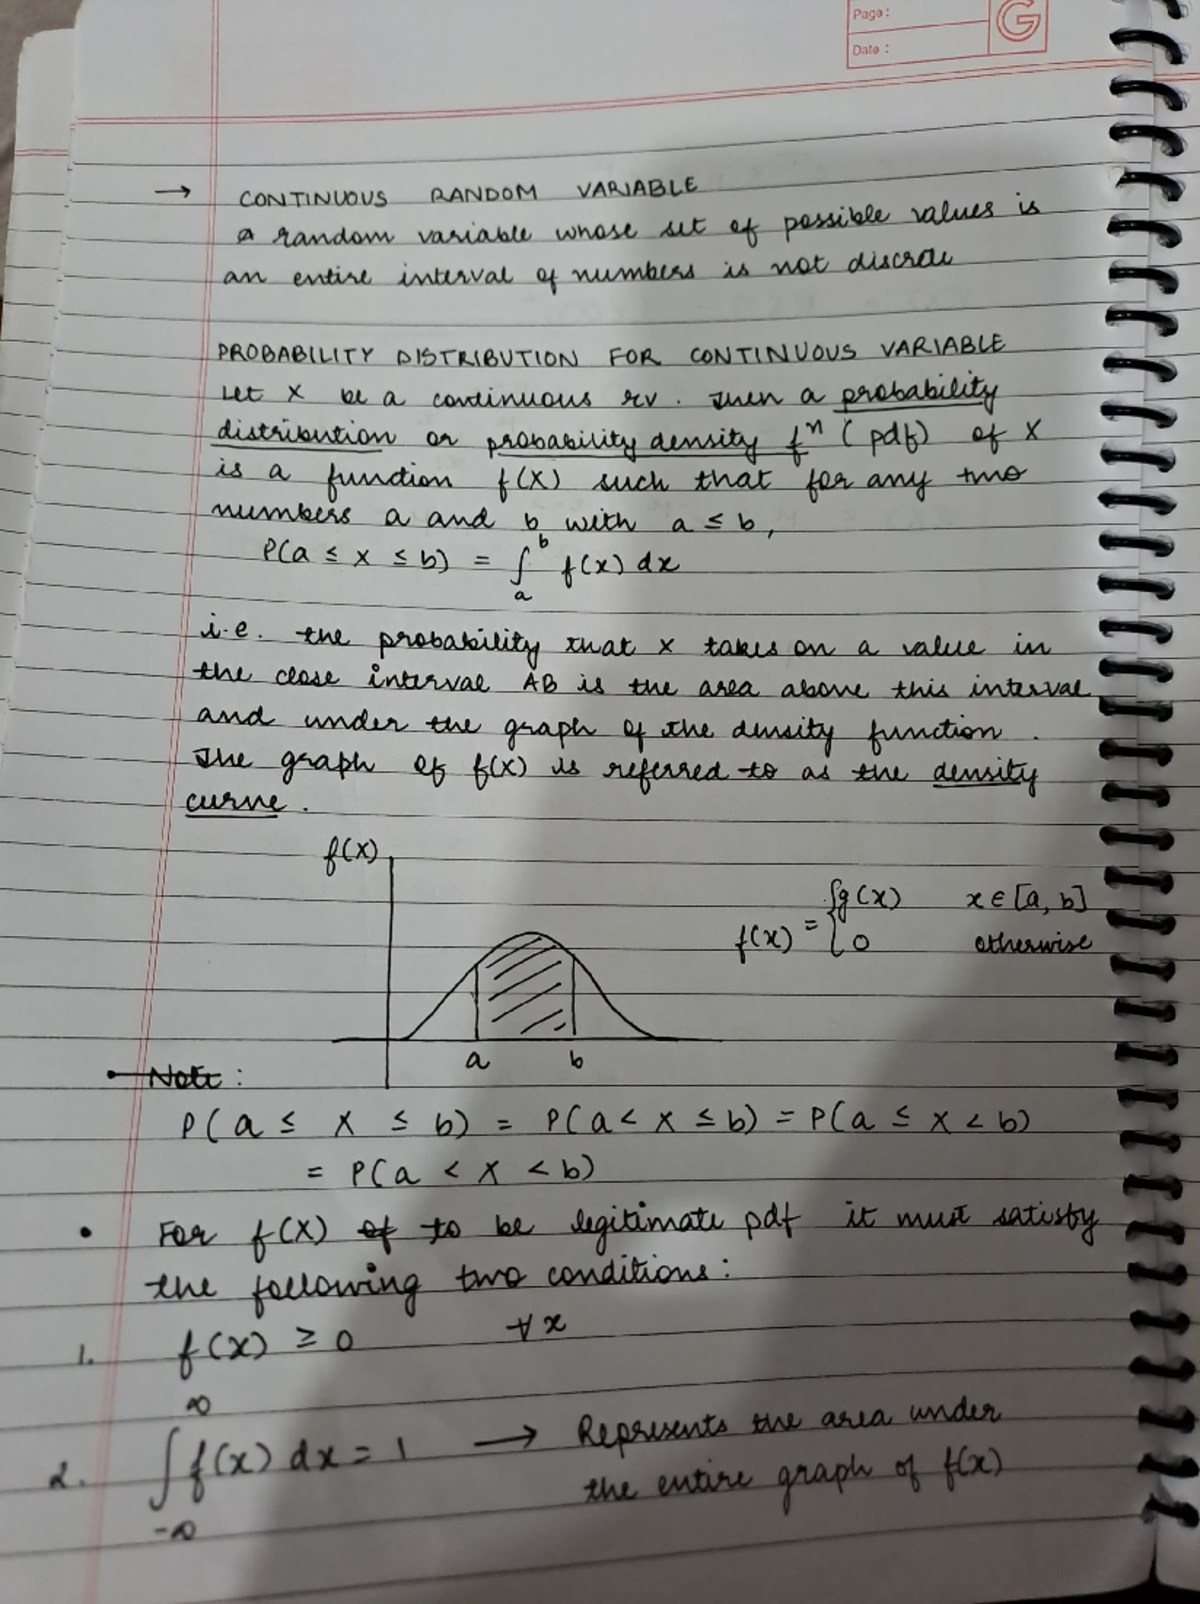 Page:
Date:
G
→ CONTINUOUS RANDOM VARIABLE
a random variable whose set of possible values is
an entire interval of numbers is not discrete
PROBABILITY DISTRIBUTION FOR CONTINUOUS VARIABLE
Let X be a continuous rv. Then a probability
distribution or probability density fⁿ (pdf) of X
is a function f(X) such that for any two
numbers a and b with a ≤ b,
P(a ≤ X ≤ b) = ∫ₐᵇ f(x) dx
i.e. the probability that X takes on a value in
the close interval AB is the area above this interval
and under the graph of the density function.
The graph of f(x) is referred to as the density
curve.
f(X)
f(x) = { g(x) x ∈ [a, b]
0 otherwise
a b
• Note:
P(a ≤ X ≤ b) = P(a < X ≤ b) = P(a ≤ X < b)
= P(a < X < b)
• For f(X) of to be legitimate pdf it must satisfy
the following two conditions:
1. f(x) ≥ 0 ∀x
2. ∫₋∞^∞ f(x) dx = 1 → Represents the area under
the entire graph of f(x)